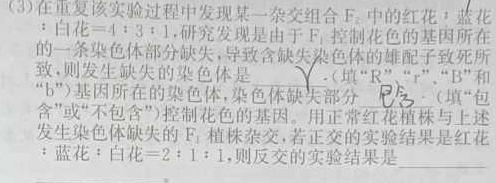 (3)在重复该实验过程中发现某一杂交组合 F₂ 中的红花：蓝花
：白花=4：3：1,研究发现是由于 F₁ 控制花色的基因所在
的一条染色体部分缺失,导致含缺失染色体的雄配子致死所
致,则发生缺失的染色体是 r (填“R”“r”“B”和
“b”)基因所在的染色体,染色体缺失部分 包含 (填“包
含”或“不包含”)控制花色的基因。用正常红花植株与上述
发生染色体缺失的 F₁ 植株杂交,若正交的实验结果是红花
：蓝花：白花=2：1：1,则反交的实验结果是